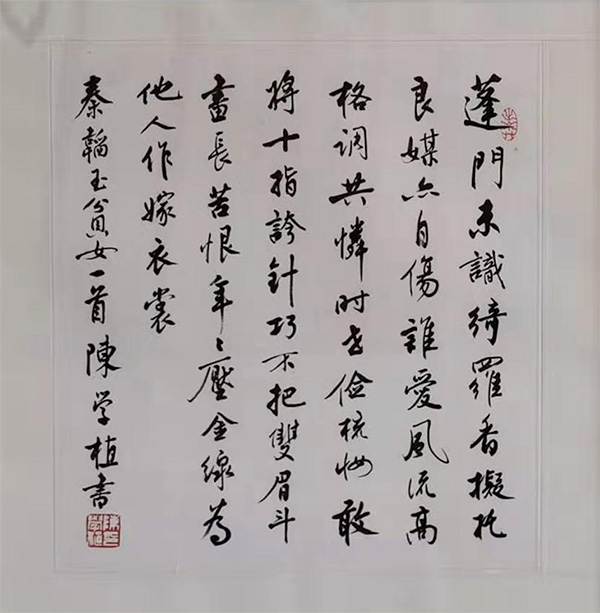 蓬門未識綺羅香擬托
良媒亦自傷誰愛風流高
格调共憐时世俭梳妆敢
将十指誇針巧不把雙眉斗
畫長苦恨年〻壓金線為
他人作嫁衣裳
秦韜玉貧女一首陳学植書